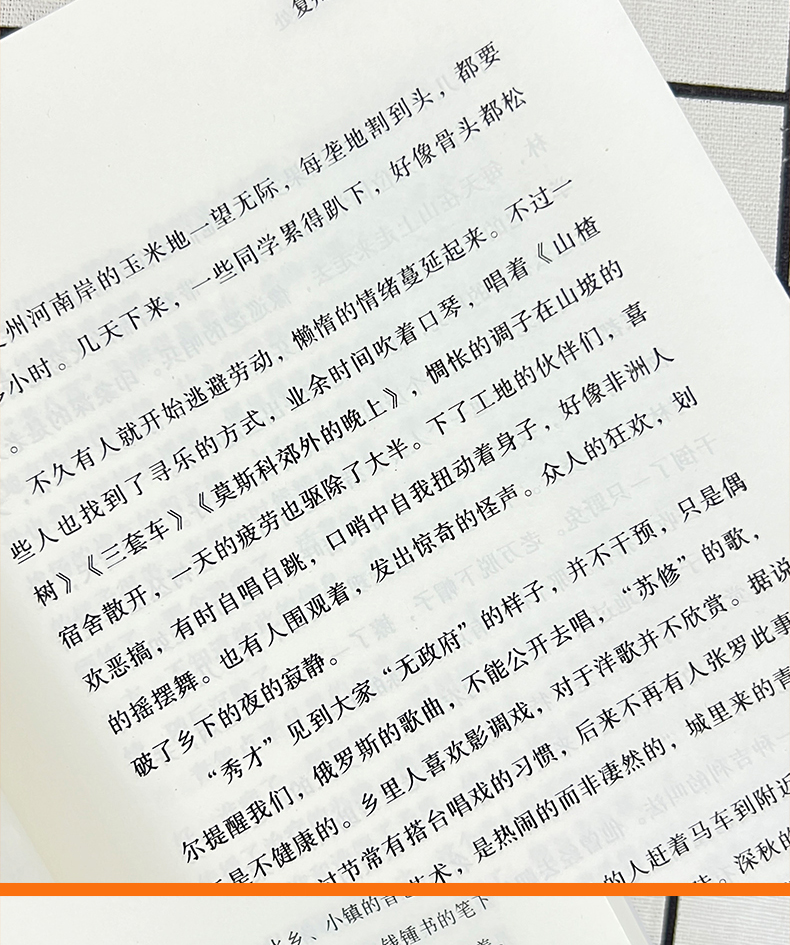 州河南岸的玉米地一望无际，每垄地割到头，都要
小时。几天下来，一些同学累得趴下，好像骨头都松
。
不久有人就开始逃避劳动，懒惰的情绪蔓延起来。不过一
些人也找到了寻乐的方式，业余时间吹着口琴，唱着《山楂
树》《三套车》《莫斯科郊外的晚上》，惆怅的调子在山坡的
宿舍散开，一天的疲劳也驱除了大半。下了工地的伙伴们，喜
欢恶搞，有时自唱自跳，口哨中自我扭动着身子，好像非洲人
的摇摆舞。也有人围观着，发出惊奇的怪声。众人的狂欢，划
破了乡下的夜的寂静。
“秀才”见到大家“无政府”的样子，并不干预，只是偶
尔提醒我们，俄罗斯的歌曲，不能公开去唱，“苏修”的歌，
是不健康的。乡里人喜欢影调戏，对于洋歌并不欣赏。据说
过节常有搭台唱戏的习惯，后来不再有人张罗此事
艺术，是热闹的而非凄然的，城里来的青
的人赶着马车到附近
深秋的
乡、小镇的
钱锺书的笔下